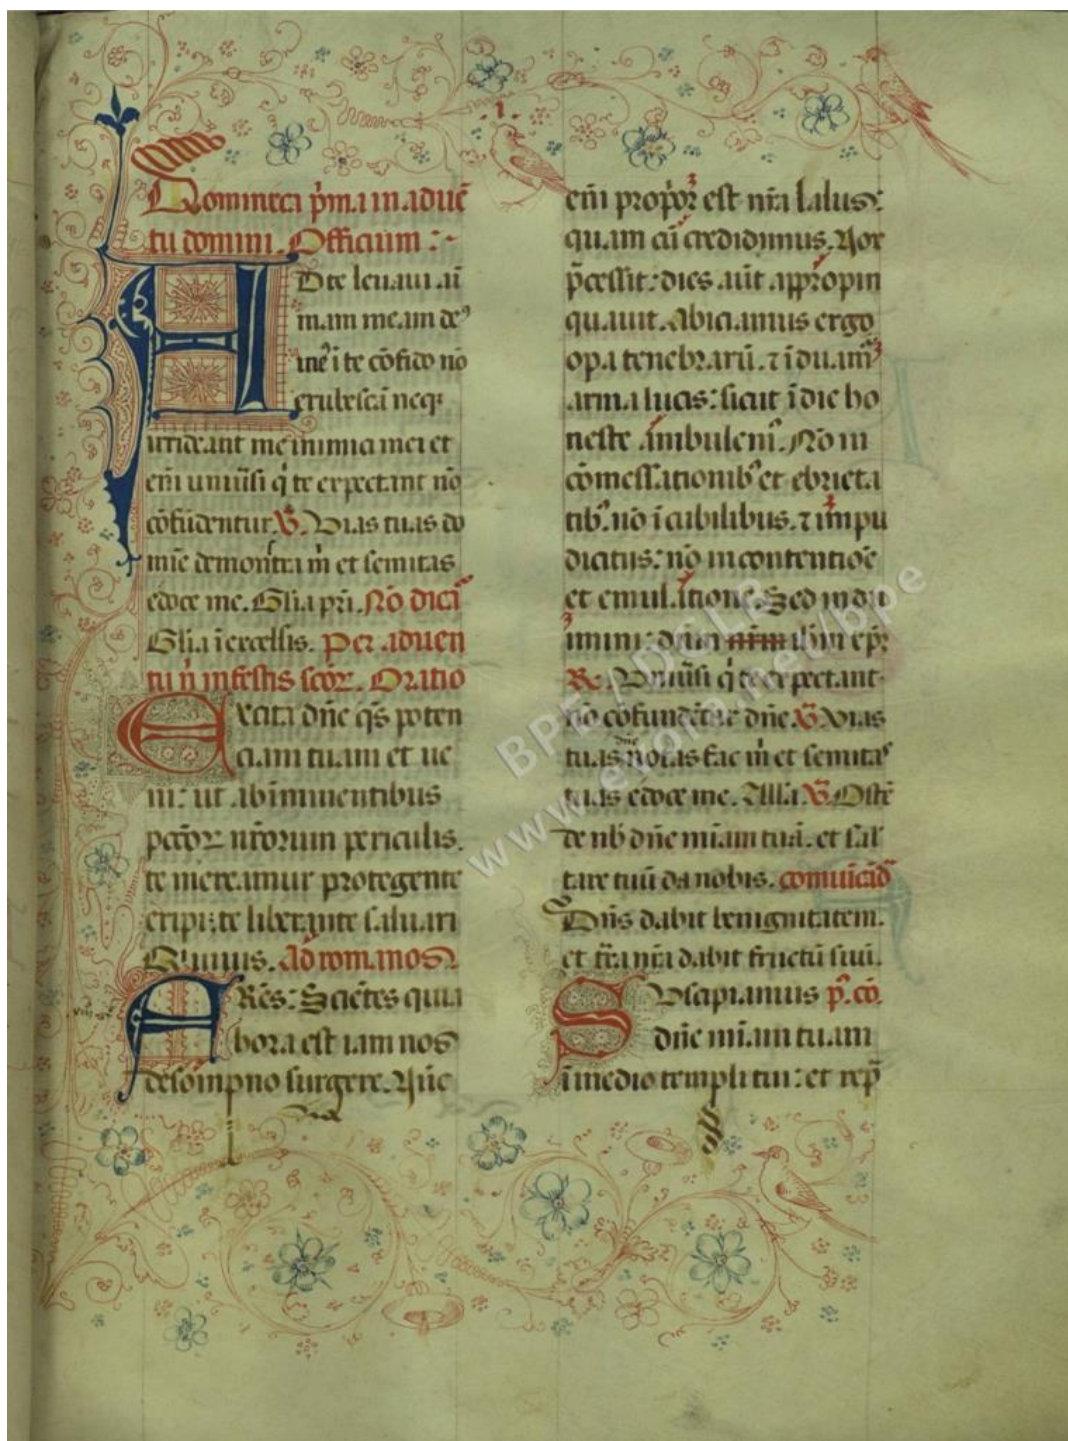 .i.
Dominica p̄ma in aduē
tu domini. Officium :~
AD te leuaui aī
mam meam de⁹
me⁹ ī te cōfido nō
erubescā neqꝫ
irrideant me inimici mei et
eni uniūsi q̄ te expectant nō
cōfūdentur. V̄. Uias tuas do
mīe demonstra m̄ et semitas
edoce me. Glīa pr̄i. Nō dicit̄
Glīa ī excelsis. Per aduen
tū n̄ in festis sc̄oꝝ. Oratio
Excita dn̄e qs̄ poten
ciam tuam et ue
ni: ut ab iminentibus
pctōꝝ nr̄orum periculis.
te mereamur protegente
eripi: te liberante saluari
Qui uiuis. Ad romanos
FRēs: Sciētes quia
hora est iam nos
de sompno surgere. Nūc
eni propior est nr̄a salus:
quam cū credidimus. Nox
p̄cessit: dies aūt appropin
quauit. Abiciamus ergo
opa tenebrarū. ⁊ īduamꝰ
arma lucis: sicut ī die ho
neste ambulemꝰ. Nō in
cōmessationibꝰ et ebrieta
tibꝰ. nō ī cubilibus. ⁊ impu
dicitus: nō in contentiōe
et emulatione. Sed indu
imini: dn̄m nr̄m ihm xp̄m
R. Uniūsi q̄ te expectant
nō cōfundētur dn̄e. V̄. Uias
tuas dn̄e notas fac m̄ et semitas
tuas edoce me. Alla. V̄. Ostē
de nb̄ dn̄e mīam tuā. et salu
tare tuū da nobis. comuīcād
Dn̄s dabit benignitatem.
et tr̄a nr̄a dabit fructū suū.
SUscipiamus p̄. cō.
dn̄e mīam tuam
ī medio templi tui: et rep̄
BPE / DSLR